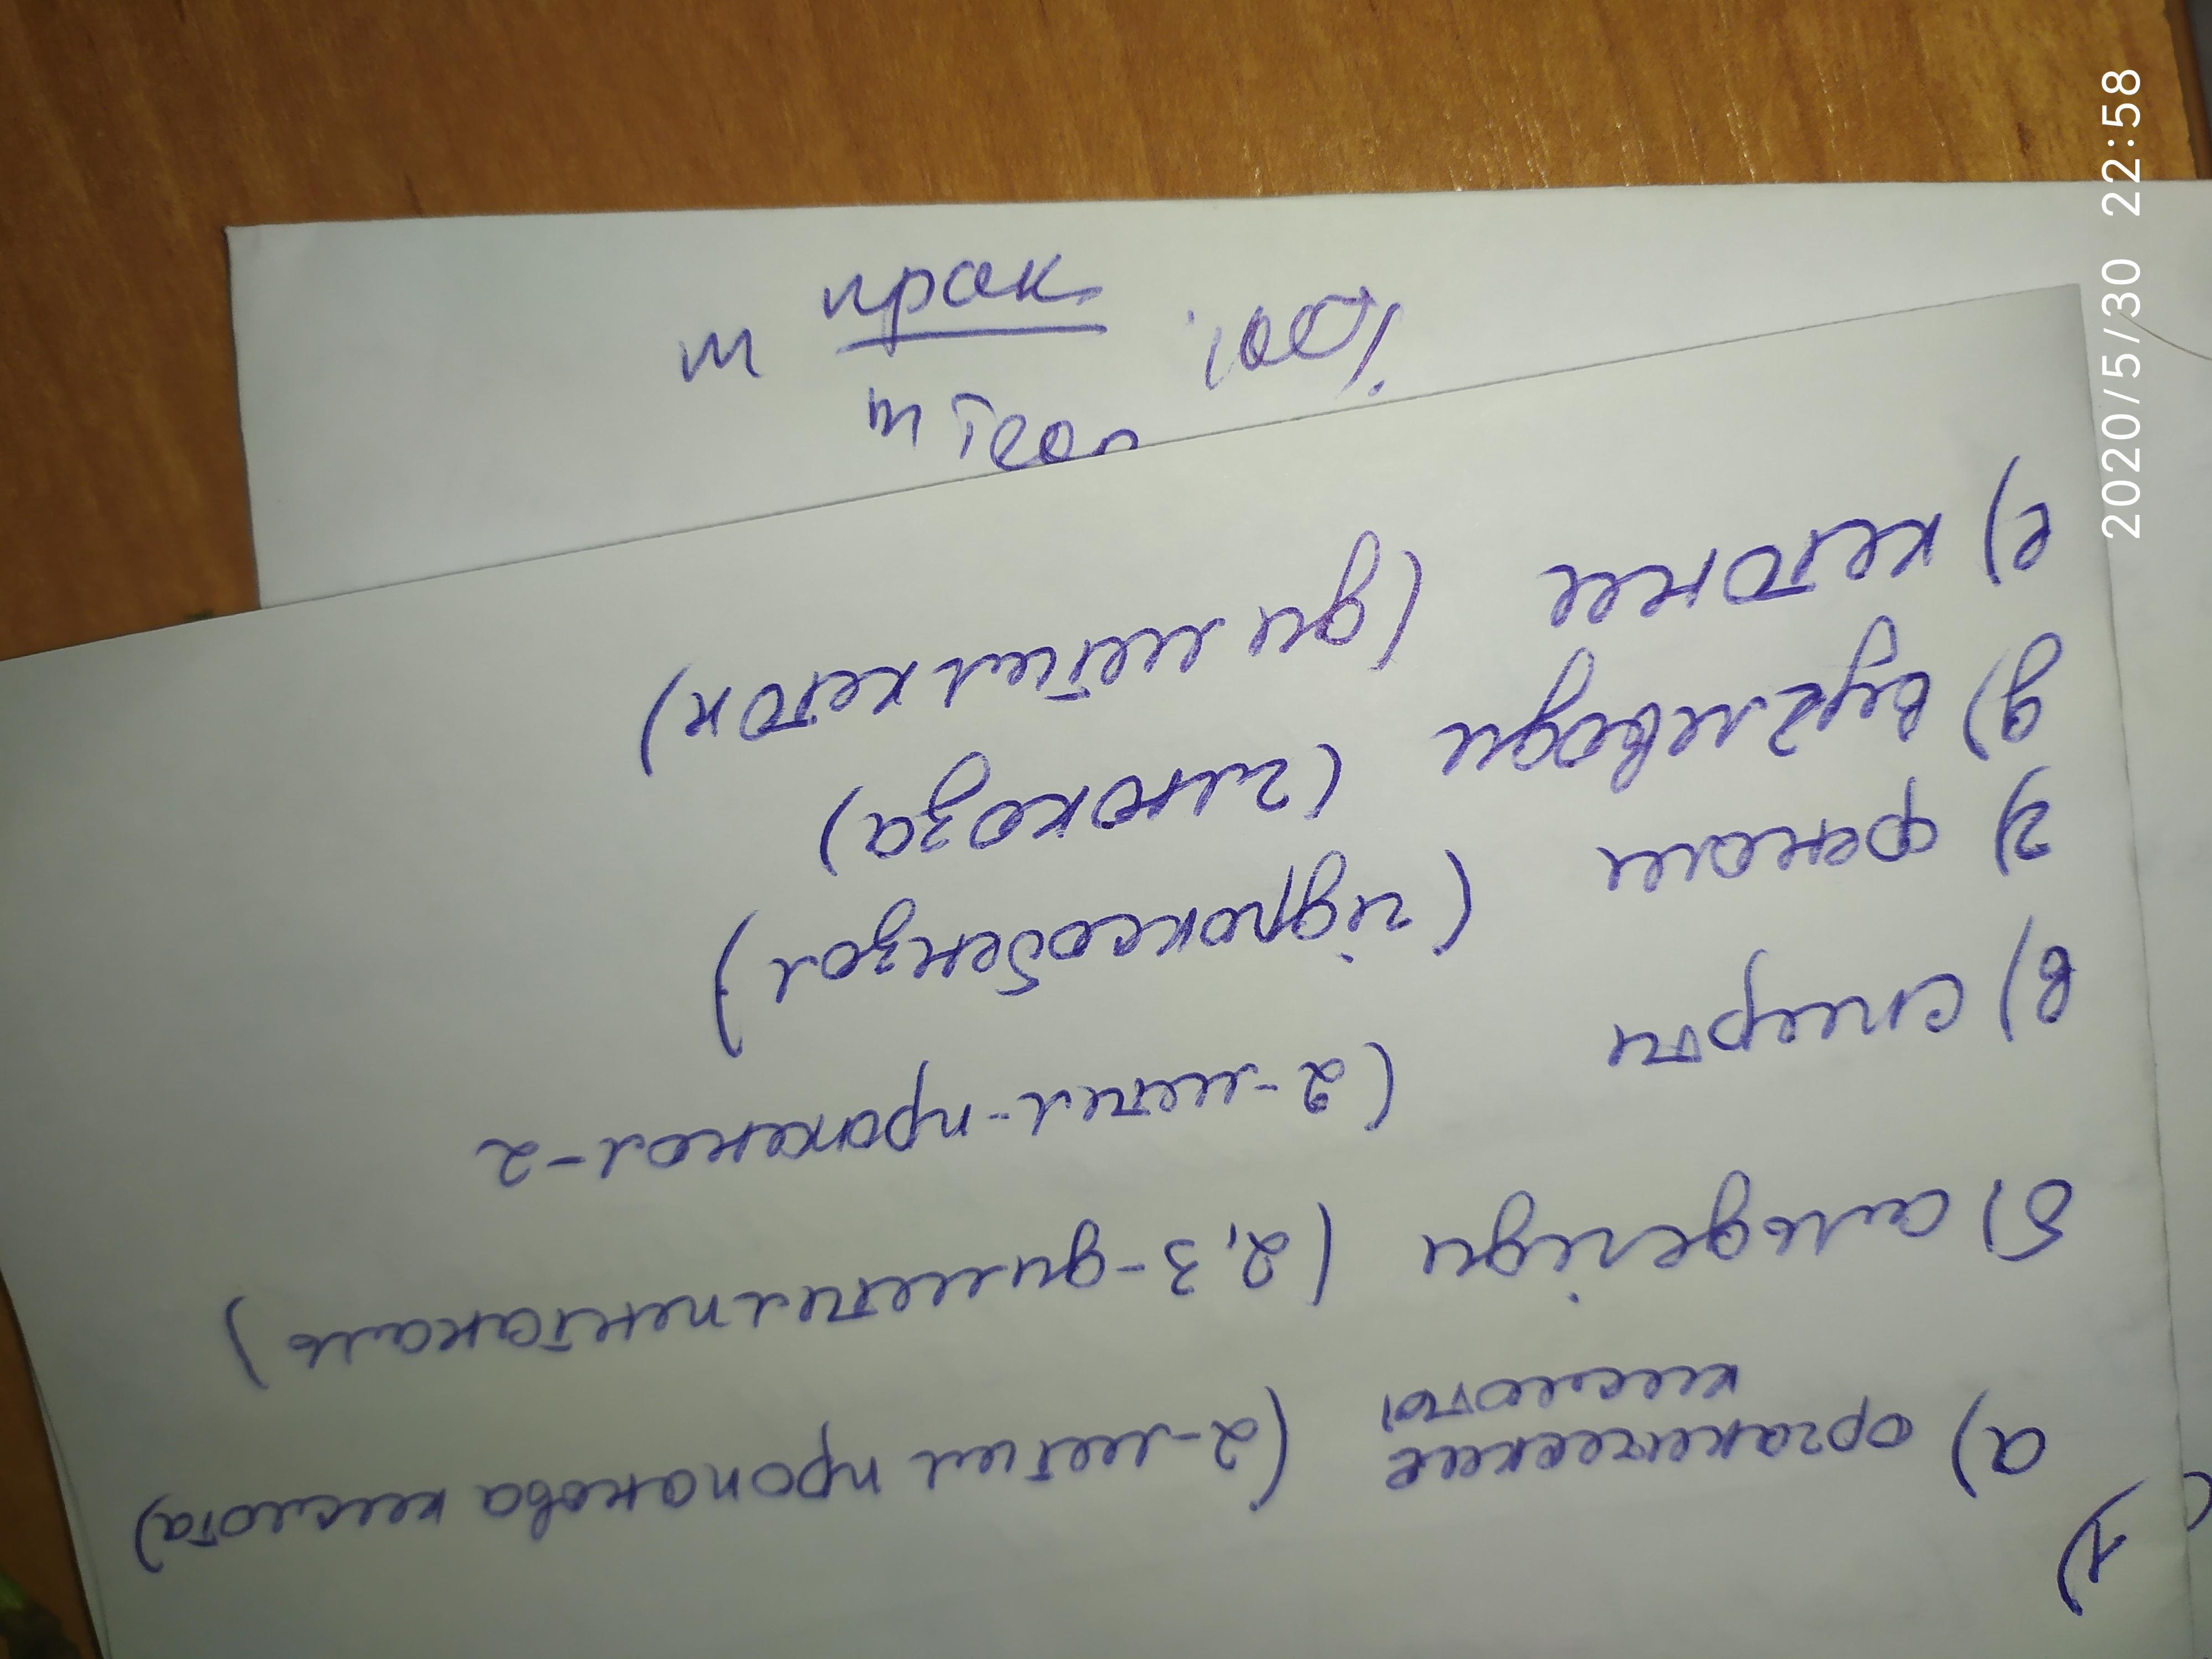 1)
а) органические (2-метил пропанова кислота)
кислоты
б) альдегіди (2,3-диметилпентаналь)
в) спирти (2-метил-пропенол-2
г) феноли (гідроксобензол)
д) вуглеводи (глюкоза)
е) кетони (диметилкетон)
m теор
m прак
100%
2020/5/30 22:58